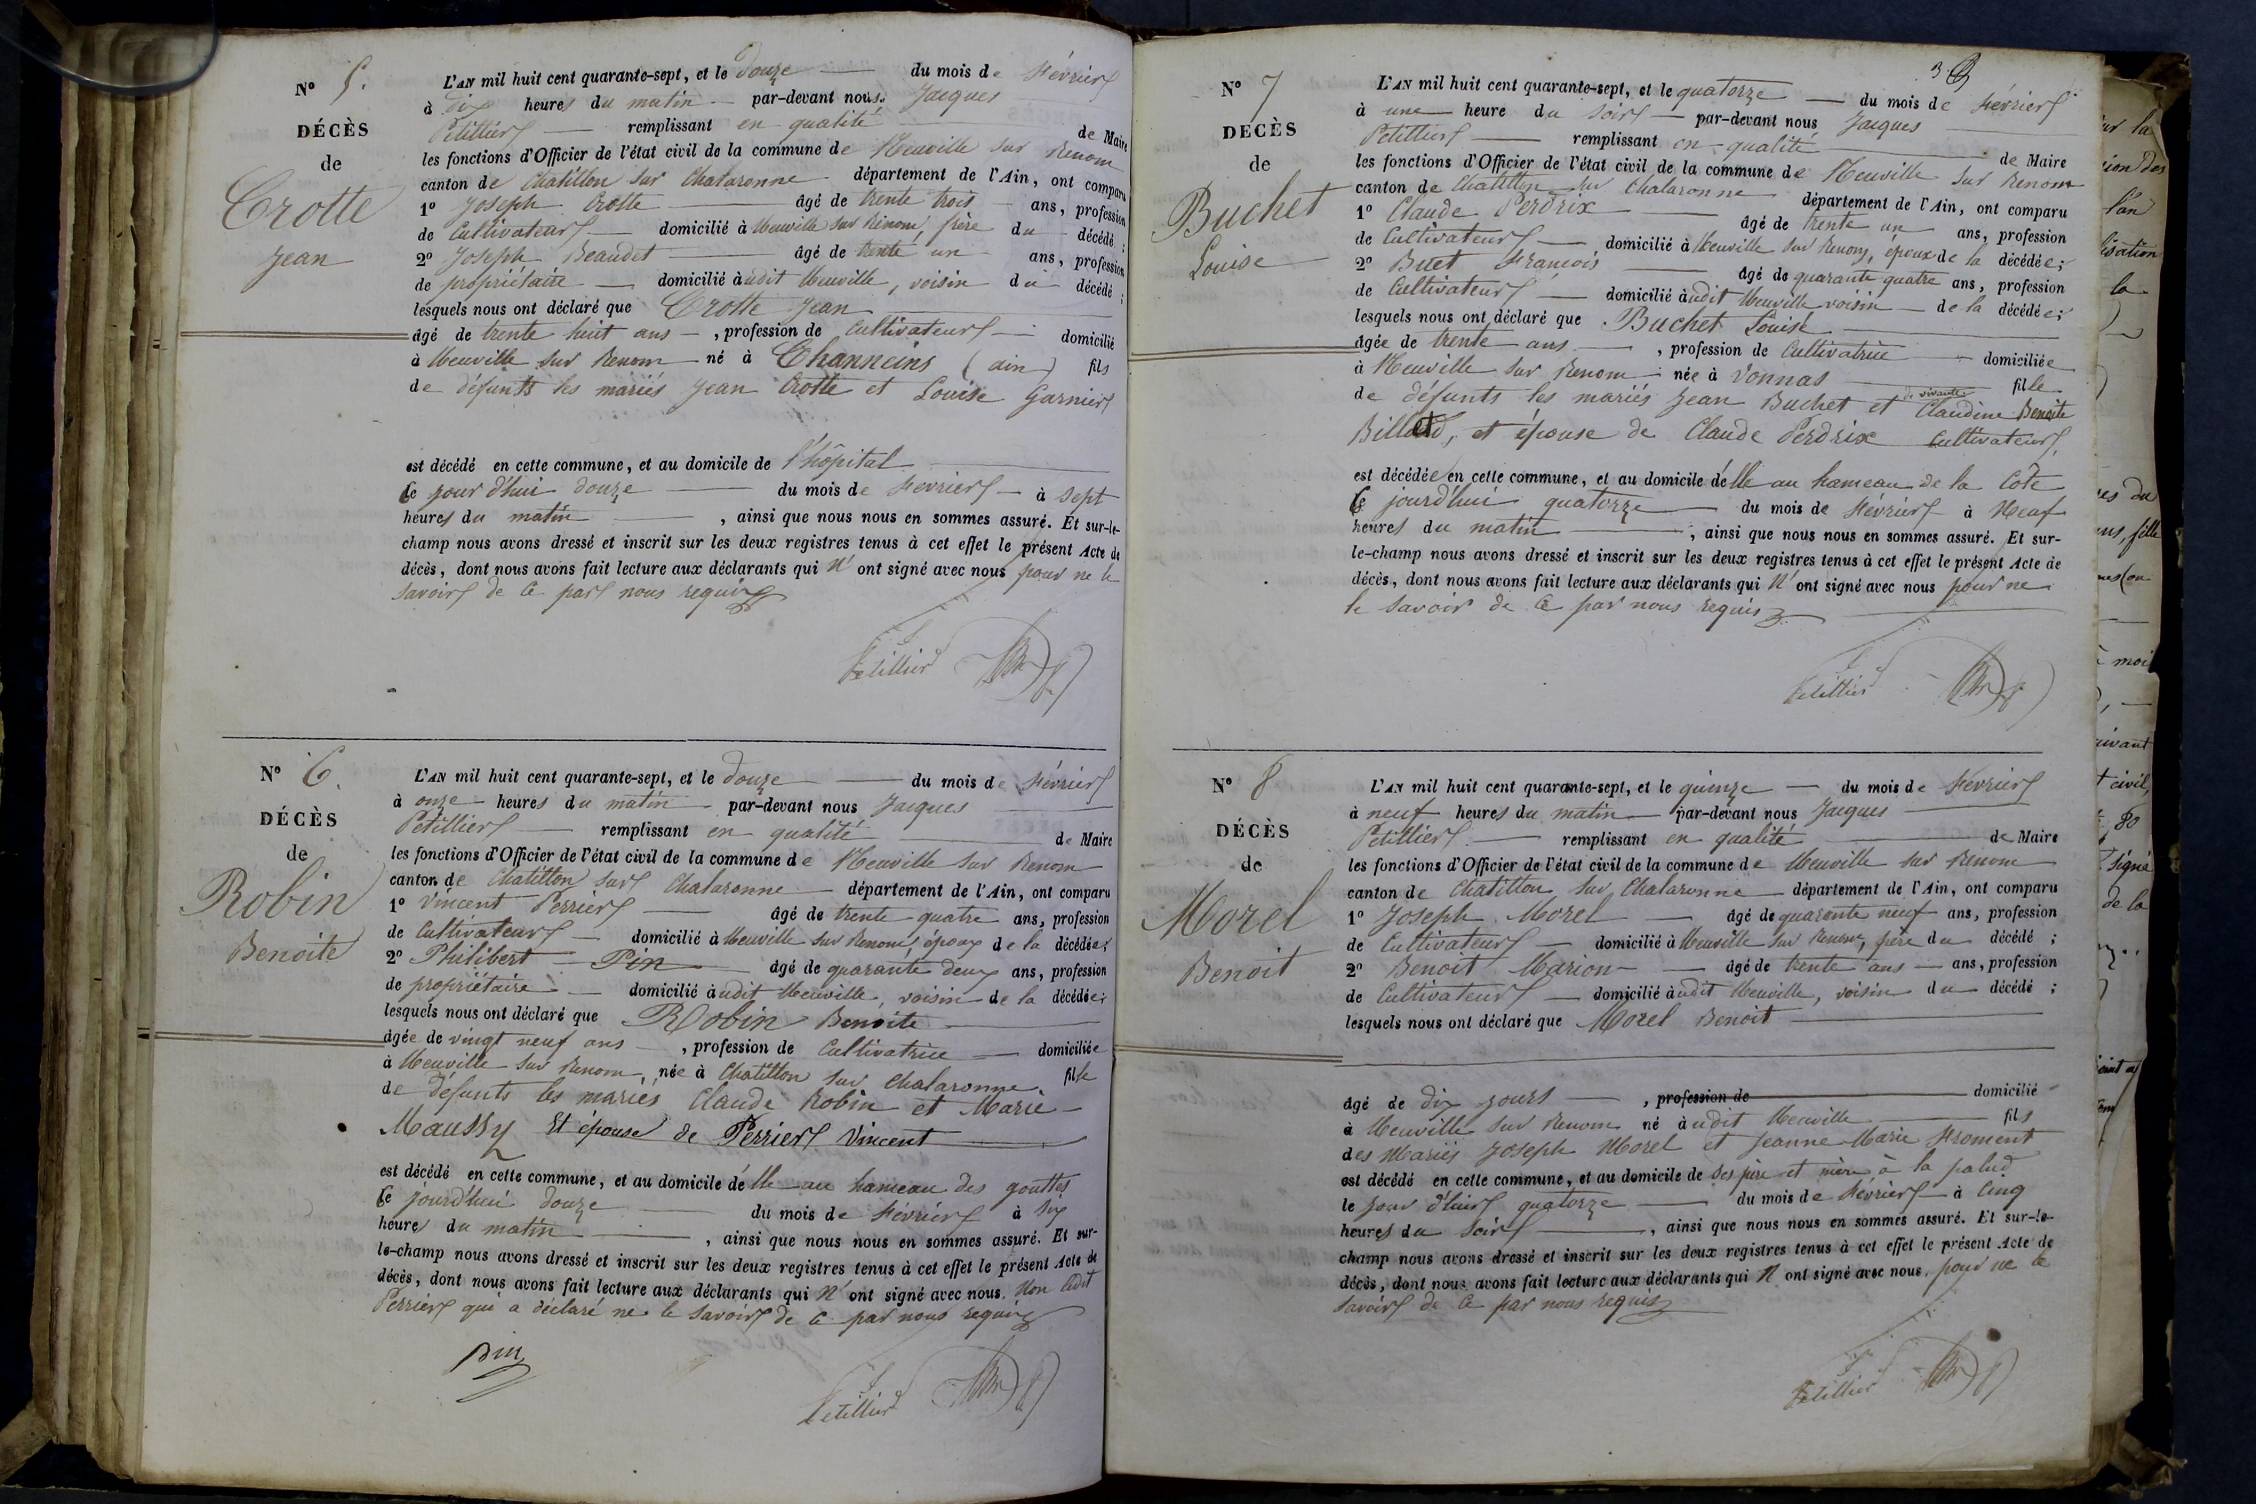 N° 5.
DÉCÈS
de
Crotte
Jean
L'AN mil huit cent quarante-sept, et le douze du mois de Février
à dix heures du matin par-devant nous Jacques
Petillier remplissant en qualité de Maire
les fonctions d'Officier de l'état civil de la commune de Neuville sur Renom
canton de Chatillon sur Chalaronne département de l'Ain, ont comparu
1° Joseph Crotte âgé de trente trois ans, profession
de Cultivateur domicilié à Neuville sur Renom, frère du décédé ;
2° Joseph Beaudet âgé de trente un ans, profession
de propriétaire domicilié audit Neuville, voisin du décédé ;
lesquels nous ont déclaré que Crotte Jean
âgé de trente huit ans , profession de Cultivateur domicilié
à Neuville sur Renom né à Channeins (ain) fils
de défunts les mariés Jean Crotte et Louise Garnier
est décédé en cette commune, et au domicile de l'hôpital
le jour d'hui douze du mois de Fevrier à sept
heures du matin , ainsi que nous nous en sommes assuré. Et sur-le-
champ nous avons dressé et inscrit sur les deux registres tenus à cet effet le présent Acte de
décès, dont nous avons fait lecture aux déclarants qui n'ont signé avec nous pour ne le
savoir de ce par nous requis
Petillier
N° 6.
DÉCÈS
de
Robin
Benoite
L'AN mil huit cent quarante-sept, et le douze du mois de Février
à onze heures du matin par-devant nous Jacques
Petillier remplissant en qualité de Maire
les fonctions d'Officier de l'état civil de la commune de Neuville sur Renom
canton de Chatillon sur Chalaronne département de l'Ain, ont comparu
1° Vincent Perrier âgé de trente quatre ans, profession
de Cultivateur domicilié à Neuville sur Renom, époux de la décédée ;
2° Philibert Pin âgé de quarante deux ans, profession
de propriétaire domicilié audit Neuville, voisin de la décédée ;
lesquels nous ont déclaré que Robin Benoite
âgée de vingt neuf ans , profession de Cultivatrice domiciliée
à Neuville sur Renom, née à Chatillon sur Chalaronne, fille
de défunts les mariés Claude Robin et Marie
Maussy Et épouse de Perrier Vincent
est décédé en cette commune, et au domicile d'elle au hameau des gouttes
le jourd'hui douze du mois de Février à six
heures du matin , ainsi que nous nous en sommes assuré. Et sur-
le-champ nous avons dressé et inscrit sur les deux registres tenus à cet effet le présent Acte de
décès, dont nous avons fait lecture aux déclarants qui n'ont signé avec nous. Non ledit
Perrier qui a déclaré ne le savoir de ce par nous requis
Pin
Petillier
3
N° 7
DÉCÈS
de
Buchet
Louise
L'AN mil huit cent quarante-sept, et le quatorze du mois de Février
à une heure du soir par-devant nous Jacques
Petillier remplissant en qualité de Maire
les fonctions d'Officier de l'état civil de la commune de Neuville sur Renom
canton de Chatillon sur Chalaronne département de l'Ain, ont comparu
1° Claude Perdrix âgé de trente un ans, profession
de Cultivateur domicilié à Neuville sur Renom, époux de la décédée ;
2° Buet François âgé de quarante quatre ans, profession
de Cultivateur domicilié audit Neuville voisin de la décédée ;
lesquels nous ont déclaré que Buchet Louise
âgée de trente ans , profession de Cultivatrice domiciliée
à Neuville sur Renom née à Vonnas fille
de défunts les mariés Jean Buchet et de vivante Claudine Benoite
Billoud, et épouse de Claude Perdrix Cultivateur,
est décédée en cette commune, et au domicile d'elle au hameau de la Cote
le jourd'hui quatorze du mois de Février à Neuf
heures du matin ; ainsi que nous nous en sommes assuré. Et sur-
le-champ nous avons dressé et inscrit sur les deux registres tenus à cet effet le présent Acte de
décès, dont nous avons fait lecture aux déclarants qui n'ont signé avec nous pour ne
le savoir de ce par nous requis
Petillier
N° 8
DÉCÈS
de
Morel
Benoit
L'AN mil huit cent quarante-sept, et le quinze du mois de Février
à neuf heures du matin par-devant nous Jacques
Petillier remplissant en qualité de Maire
les fonctions d'Officier de l'état civil de la commune de Neuville sur Renom
canton de Chatillon sur Chalaronne département de l'Ain, ont comparu
1° Joseph Morel âgé de quarante neuf ans, profession
de Cultivateur domicilié à Neuville sur Renom, père du décédé ;
2° Benoit Marion âgé de trente ans ans, profession
de Cultivateur domicilié audit Neuville, voisin du décédé ;
lesquels nous ont déclaré que Morel Benoit
âgé de dix jours , profession de domicilié
à Neuville sur Renom né audit Neuville fils
des Mariés Joseph Morel et Jeanne Marie Froment
est décédé en cette commune, et au domicile de ses père et mère à la palud
le jour d'hier quatorze du mois de Février à Cinq
heures du soir , ainsi que nous nous en sommes assuré. Et sur-le-
champ nous avons dressé et inscrit sur les deux registres tenus à cet effet le présent Acte de
décès, dont nous avons fait lecture aux déclarants qui n'ont signé avec nous, pour ne le
savoir de ce par nous requis
Petillier